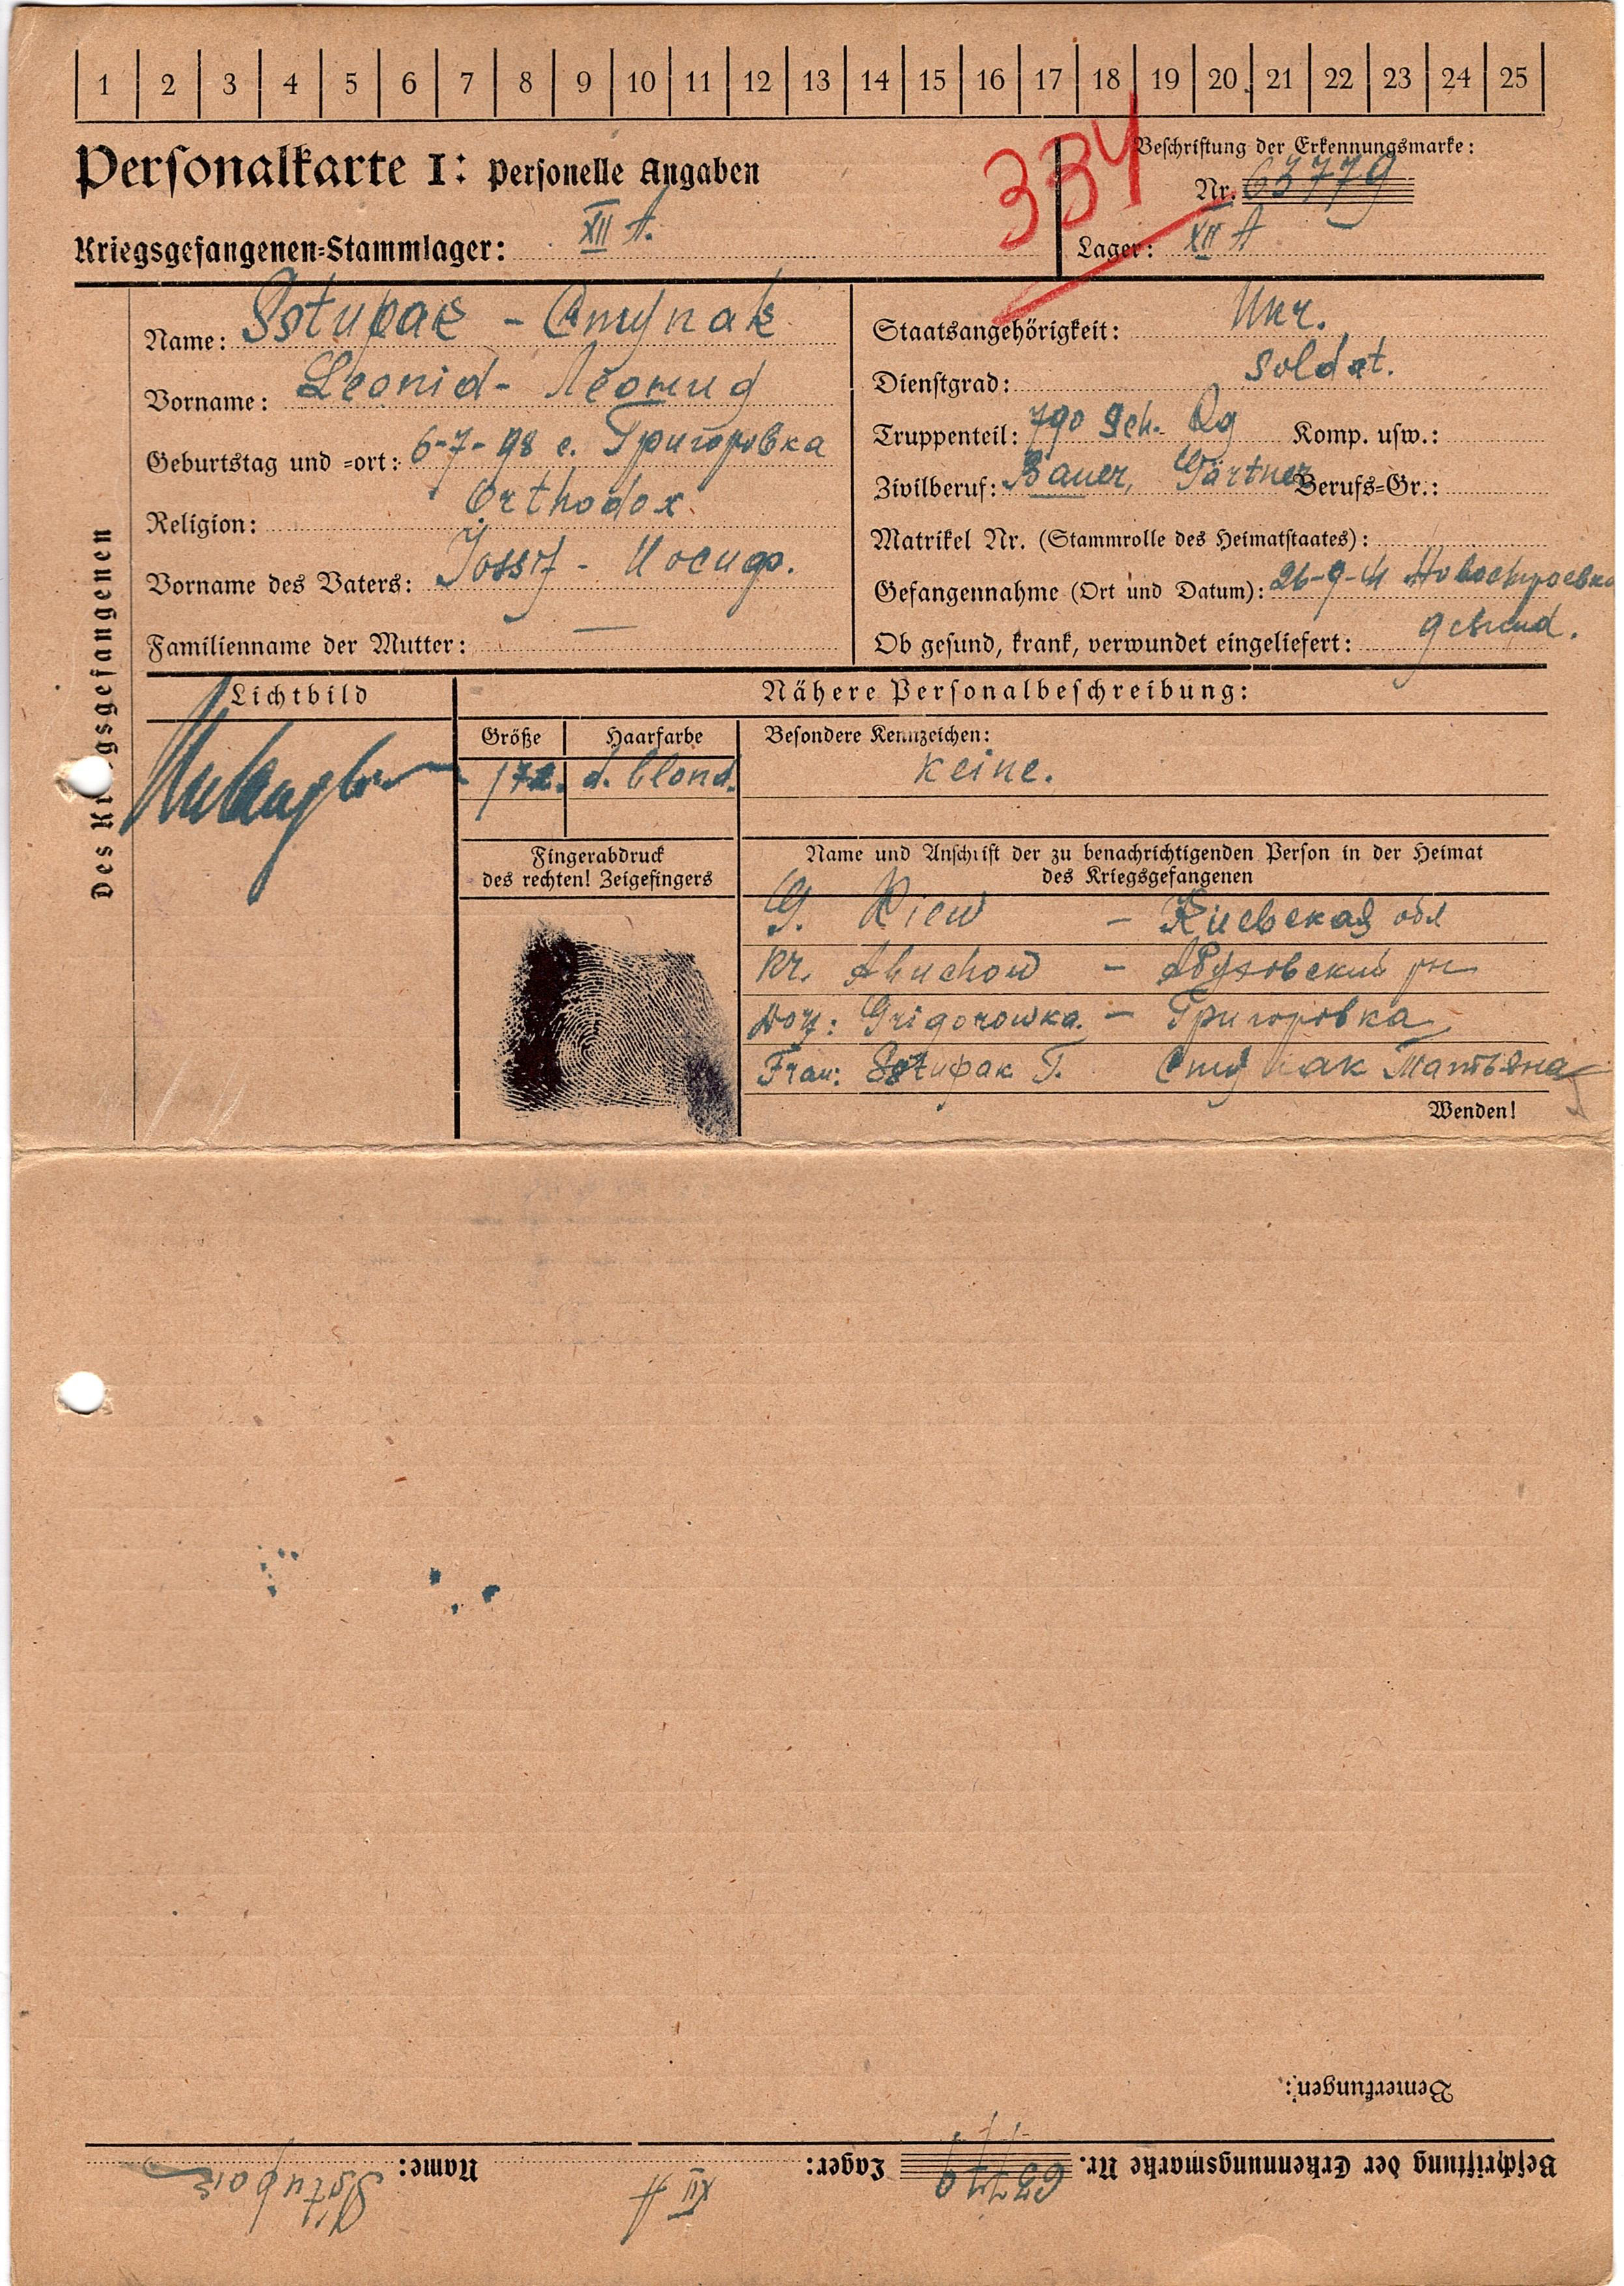 1 2 3 4 5 6 7 8 9 10 11 12 13 14 15 16 17 18 19 20 21 22 23 24 25
Personalkarte I: Personelle Angaben
334
Beschriftung der Erkennungsmarke:
Nr. 63779
Kriegsgefangenen-Stammlager: XII A.
Lager: XII A
Des Kriegsgefangenen
Name: Sstupak - Ступак
Vorname: Leonid - Леонид
Geburtstag und -ort: 6-7-98 с. Григоровка
Religion: Orthodox
Vorname des Vaters: Jossif - Иосиф.
Familienname der Mutter: —
Staatsangehörigkeit: Ukr.
Dienstgrad: Soldat.
Truppenteil: 790 Sch. Rg Komp. usw.:
Zivilberuf: Bauer, Gärtner Berufs-Gr.:
Matrikel Nr. (Stammrolle des Heimatstaates):
Gefangennahme (Ort und Datum): 26-9-41
Ob gesund, krank, verwundet eingeliefert: gesund.
Lichtbild
Nähere Personalbeschreibung:
Größe Haarfarbe Besondere Kennzeichen:
172. d. blond. keine.
Fingerabdruck
des rechten! Zeigefingers
Name und Anschrift der zu benachrichtigenden Person in der Heimat
des Kriegsgefangenen
G. Kiew - Киевская обл
Kr. Abuchow - Абуховский рн
Dorf: Grigorowka. - Григоровка
Frau: Sstupak T. Ступак Татьяна
Wenden!
Bemerkungen:
Beschriftung der Erkennungsmarke Nr. 63779 Lager: XII A Name: Sstupak